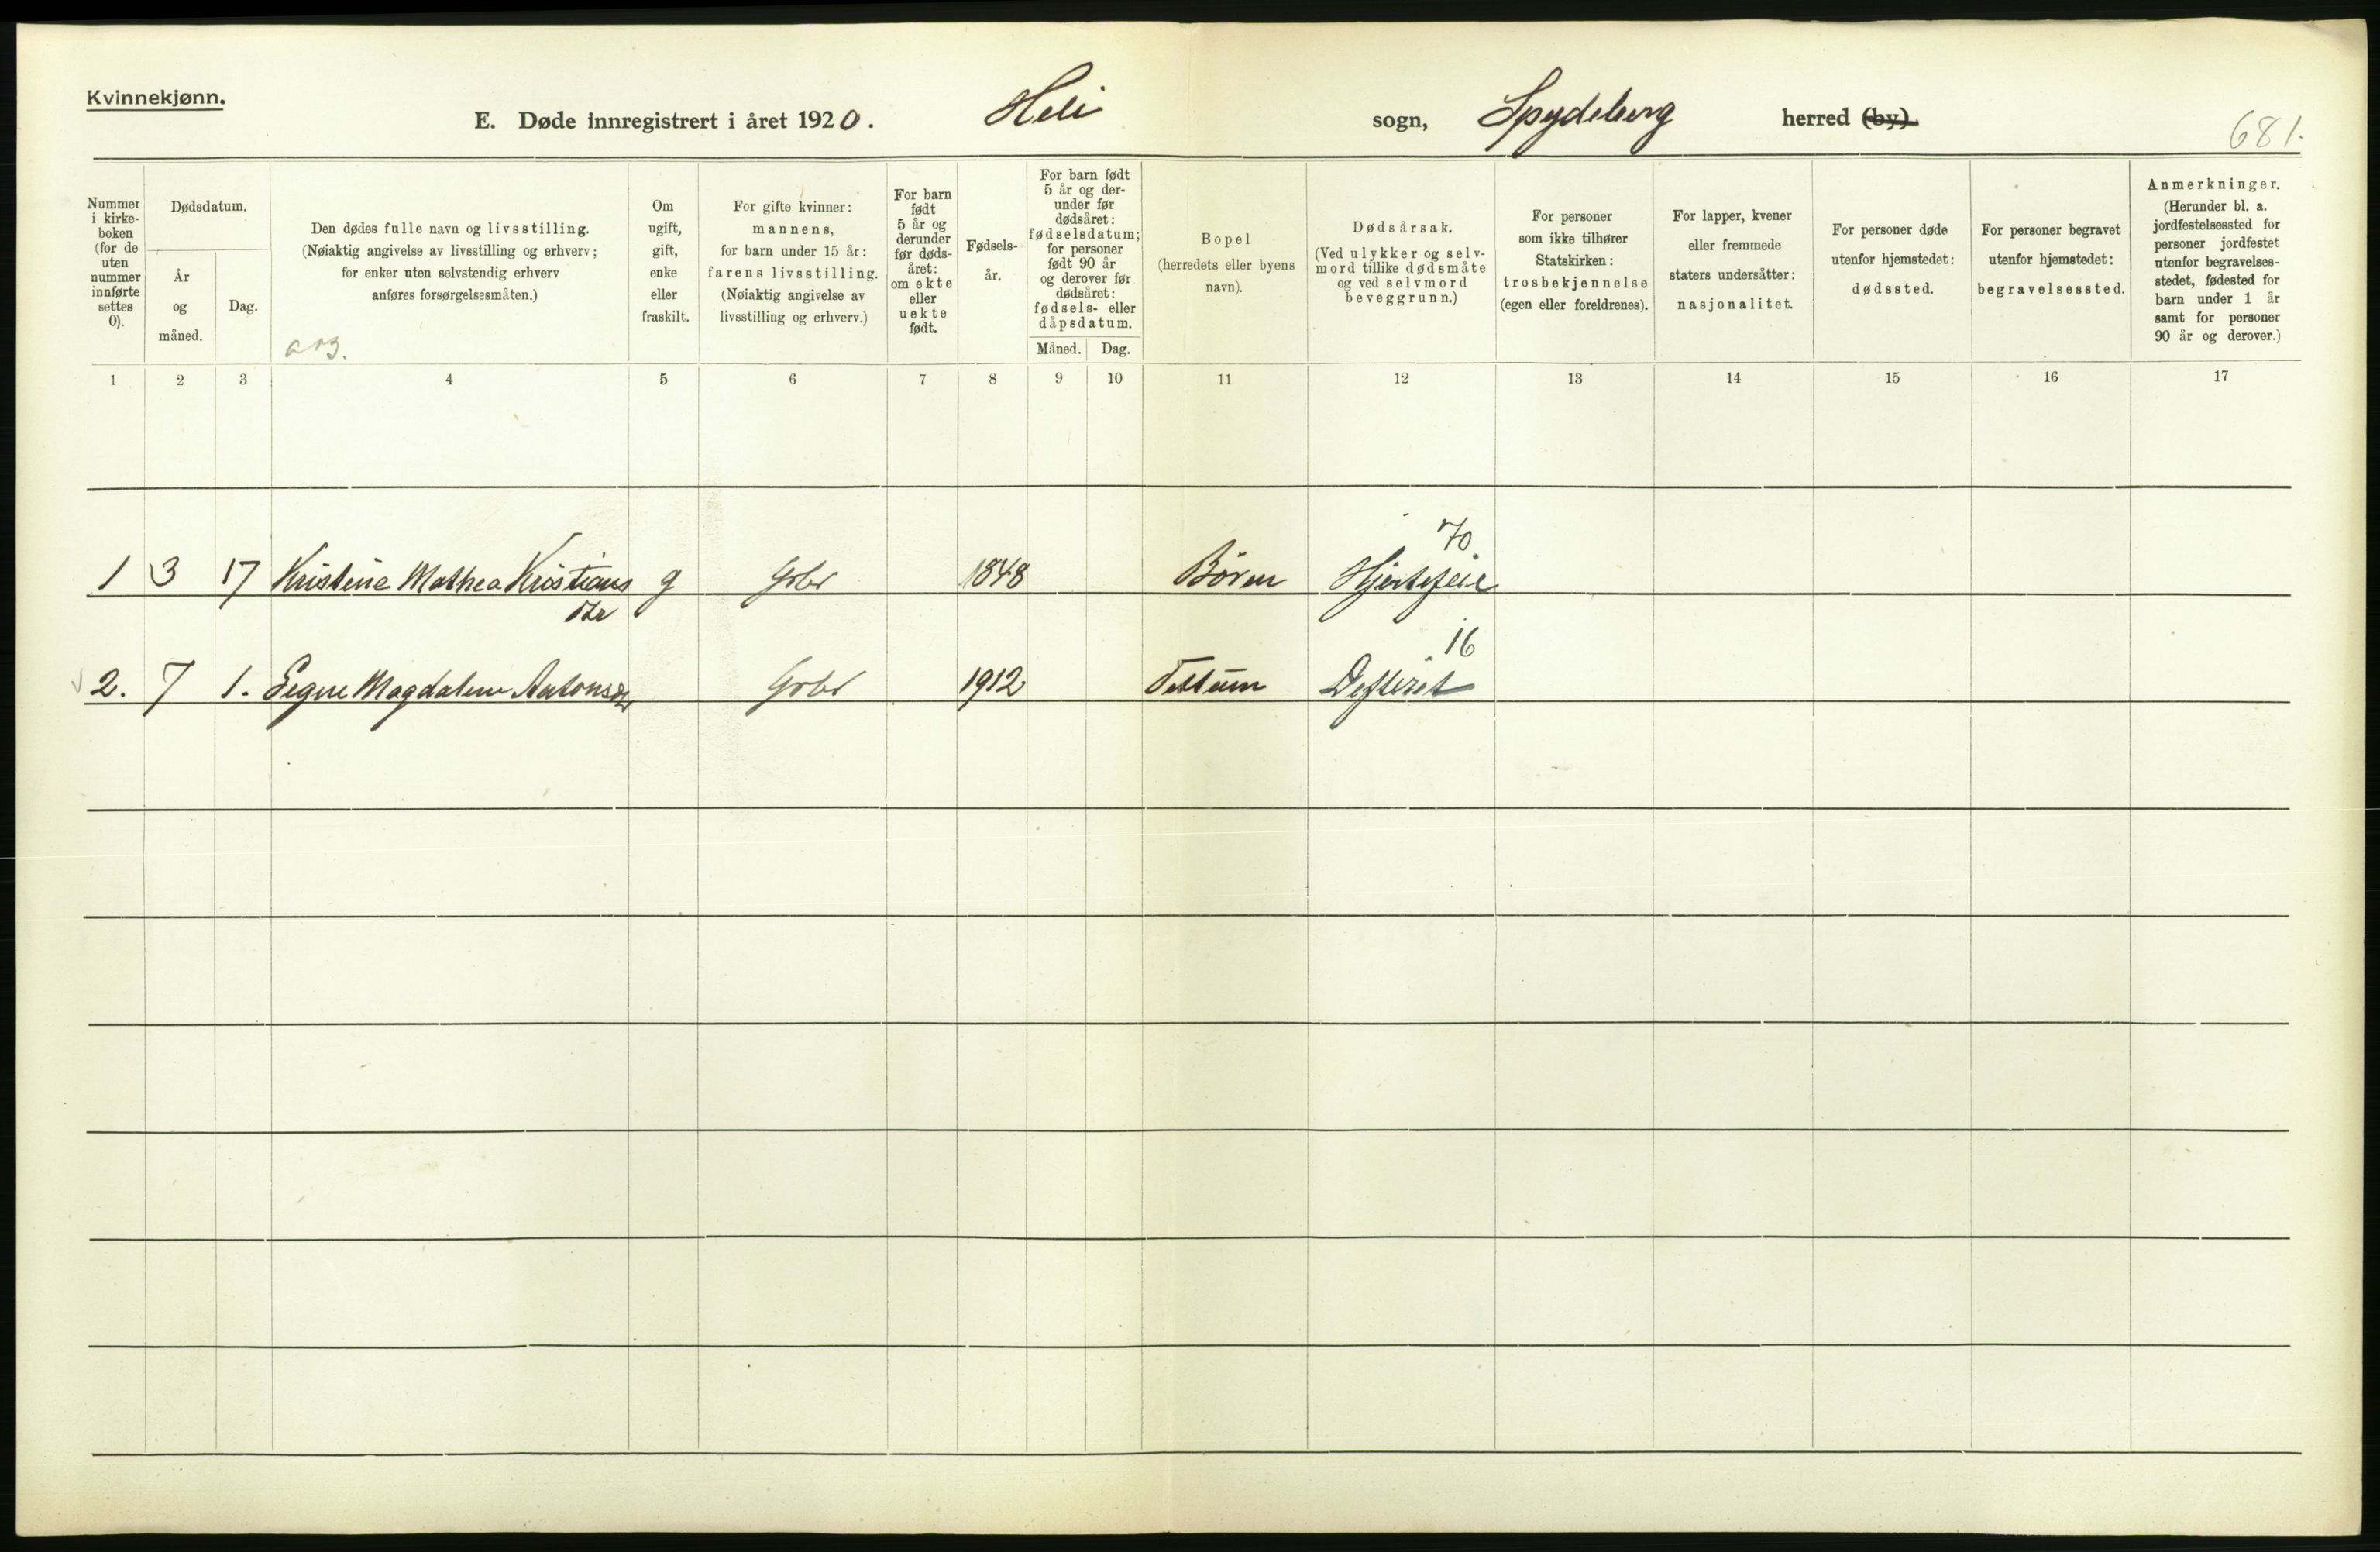 Kvinnekjønn.
E. Døde innregistrert i året 1920. Heli sogn, Spydeberg herred (by).
681.
Nummer i kirke- boken (for de uten nummer innførte settes 0).
Dødsdatum.
År og måned.
Dag.
Den dødes fulle navn og livsstilling.
(Nøiaktig angivelse av livsstilling og erhverv;
for enker uten selvstendig erhverv
anføres forsørgelsesmåten.)
Om ugift, gift, enke eller fraskilt.
For gifte kvinner:
mannens,
for barn under 15 år:
farens livsstilling.
(Nøiaktig angivelse av
livsstilling og erhverv.)
For barn født 5 år og derunder før døds- året: om ekte eller uekte født.
Fødsels- år.
For barn født 5 år og der- under før dødsåret: fødselsdatum; for personer født 90 år og derover før dødsåret: fødsels- eller dåpsdatum.
Måned.
Dag.
Bopel
(herredets eller byens
navn).
Dødsårsak.
(Ved ulykker og selv-
mord tillike dødsmåte
og ved selvmord
beveggrunn.)
For personer
som ikke tilhører
Statskirken:
trosbekjennelse
(egen eller foreldrenes).
For lapper, kvener
eller fremmede
staters undersåtter:
nasjonalitet.
For personer døde
utenfor hjemstedet:
dødssted.
For personer begravet
utenfor hjemstedet:
begravelsessted.
Anmerkninger.
(Herunder bl. a.
jordfestelsessted for
personer jordfestet
utenfor begravelses-
stedet, fødested for
barn under 1 år
samt for personer
90 år og derover.)
1 2 3 4 5 6 7 8 9 10 11 12 13 14 15 16 17
70
1 3 17 Kristine Mathea Kristians g Grbr 1848 Børen Hjertefeil
dtr
16
2. 7 1. Signe Magdalene Antonsen Grbr 1912 Difterit